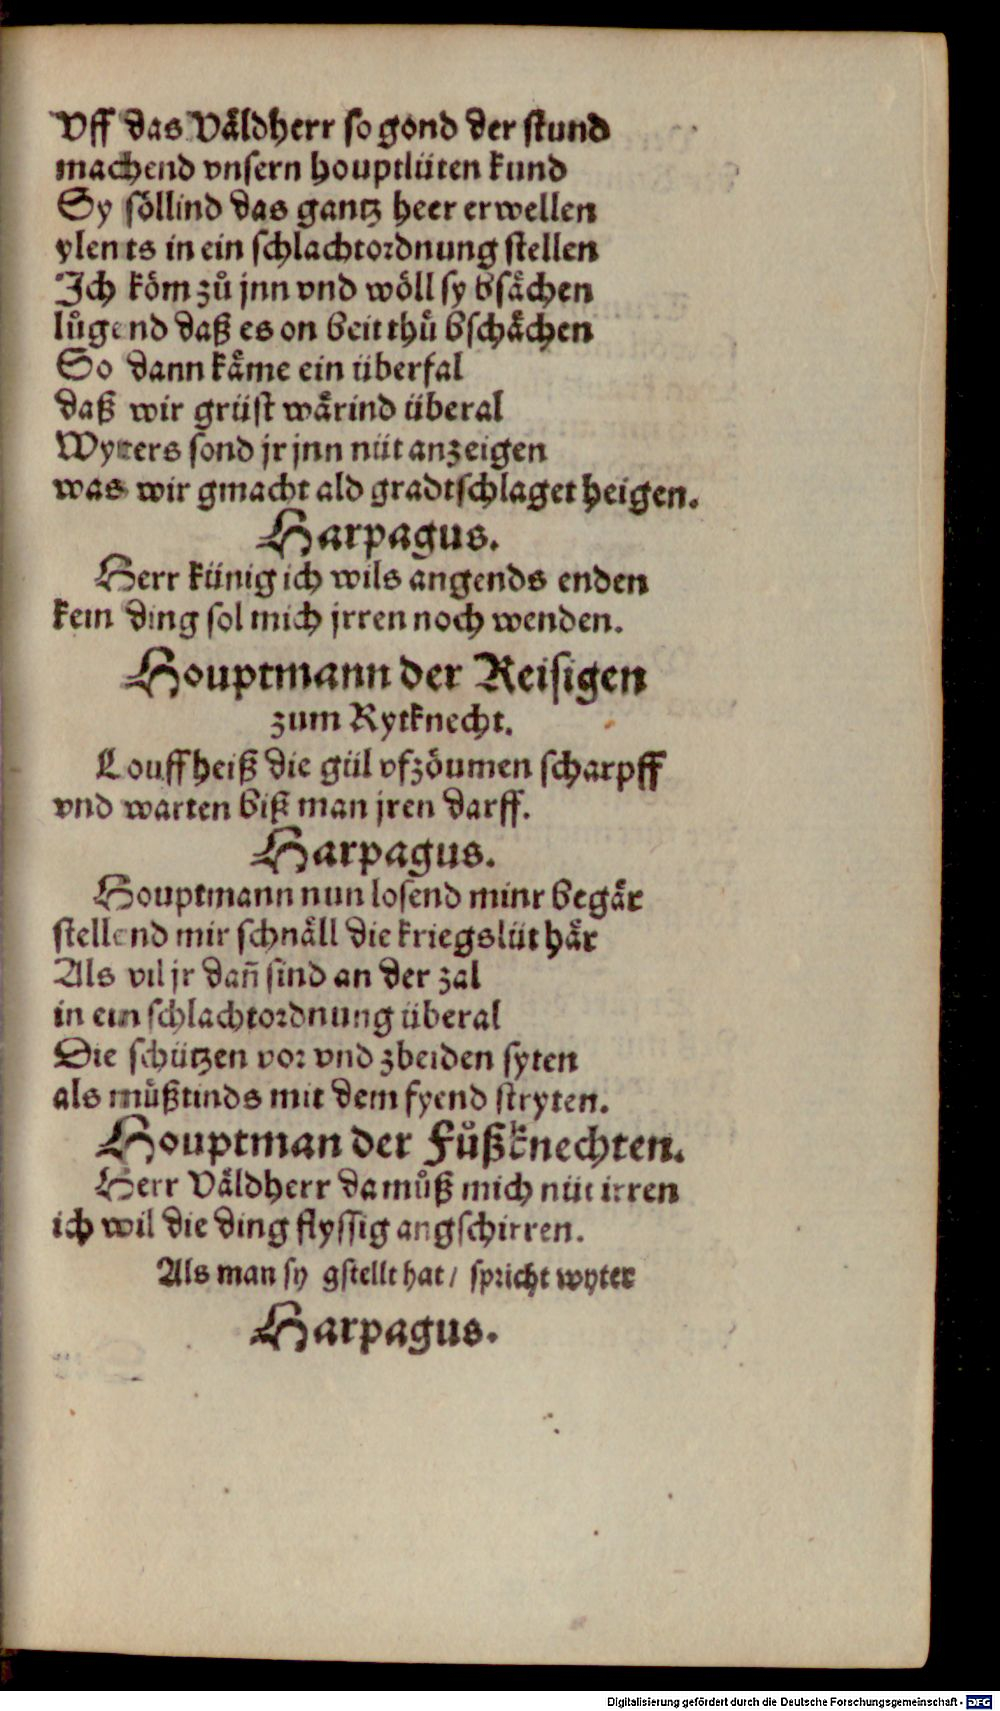 Vff das Väldherr so gond der stund
machend vnsern houptlüten kund
Sy söllind das gantz heer erwellen
ylents in ein schlachtordnung stellen
Ich köm zů jnn vnd wöll sy bsächen
lůgend daß es on beit thů bschächen
So dann käme ein überfal
daß wir grüst wärind überal
Wyters sond jr jnn nüt anzeigen
was wir gmacht ald gradtschlaget heigen.
Harpagus.
Herr künig ich wils angends enden
kein ding sol mich jrren noch wenden.
Houptmann der Reisigen
zum Rytknecht.
Louff heiß die gül vfzöumen scharpff
vnd warten biß man jren darff.
Harpagus.
Houptmann nun losend minr begär
stellend mir schnäll die kriegslüt här
Als vil jr dañ sind an der zal
in ein schlachtordnung überal
Die schützen vor vnd zbeiden syten
als můßtinds mit dem fyend stryten.
Houptman der Fůßknechten.
Herr Väldherr da můß mich nüt irren
ich wil die ding flyssig angschirren.
Als man sy gstellt hat / spricht wyter
Harpagus.
Digitalisierung gefördert durch die Deutsche Forschungsgemeinschaft - DFG